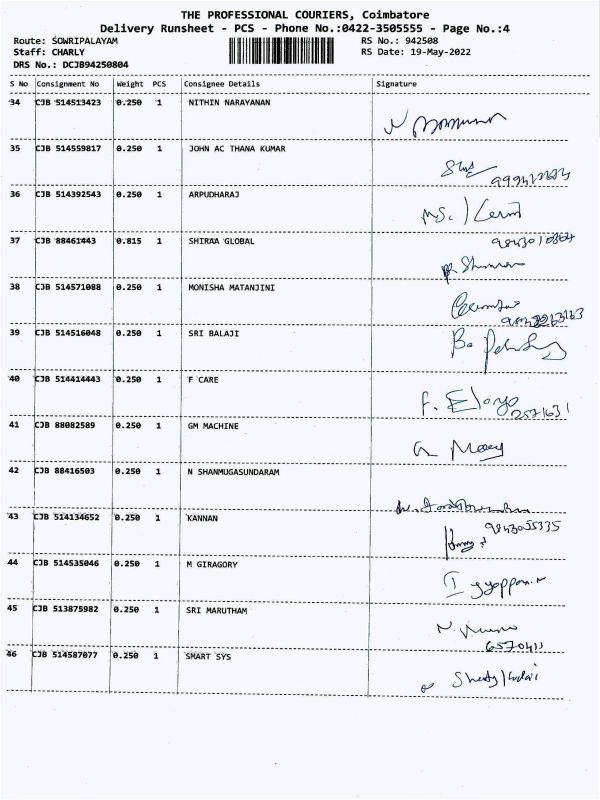 THE PROFESSIONAL COURIERS, Coimbatore
Delivery Runsheet - PCS - Phone No.:0422-3505555 - Page No.:4
Route: SOWRIPALAYAM RS No.: 942508
Staff: CHARLY RS Date: 19-May-2022
DRS No.: DCJB94250804
S No Consignment No Weight PCS Consignee Details Signature
34 CJB 514513423 0.250 1 NITHIN NARAYANAN
35 CJB 514559817 0.250 1 JOHN AC THANA KUMAR
36 CJB 514392543 0.250 1 ARPUDHARAJ
37 CJB 88461443 0.815 1 SHIRAA GLOBAL
38 CJB 514571088 0.250 1 MONISHA MATANJINI
39 CJB 514516048 0.250 1 SRI BALAJI
40 CJB 514414443 0.250 1 F CARE
2571631
41 CJB 88082589 0.250 1 GM MACHINE
42 CJB 88416503 0.250 1 N SHANMUGASUNDARAM
43 CJB 514134652 0.250 1 KANNAN
9843055335
44 CJB 514535046 0.250 1 M GIRAGORY
45 CJB 513875982 0.250 1 SRI MARUTHAM
46 CJB 514587077 0.250 1 SMART SYS